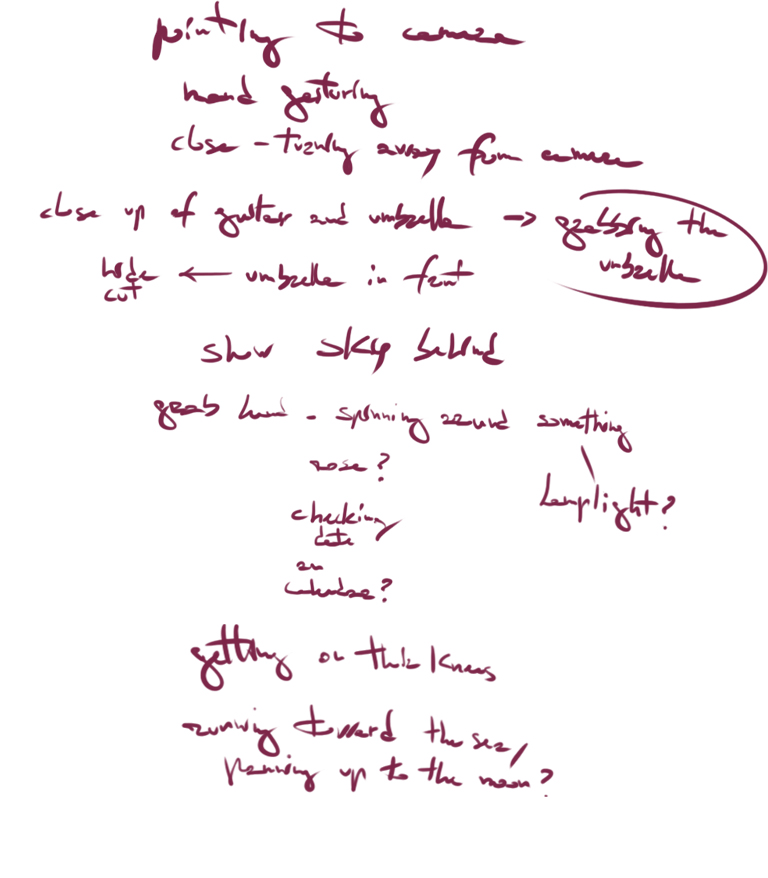 pointing to camera
hand gesturing
close - turning away from camera
close up of guitar and umbrella → grabbing the umbrella
wide cut ← umbrella in front
show skip behind
grab hand - spinning around something
rose?
Lamplight?
checking
date
on
calendar?
getting on their knees
running toward the sea,
panning up to the moon?